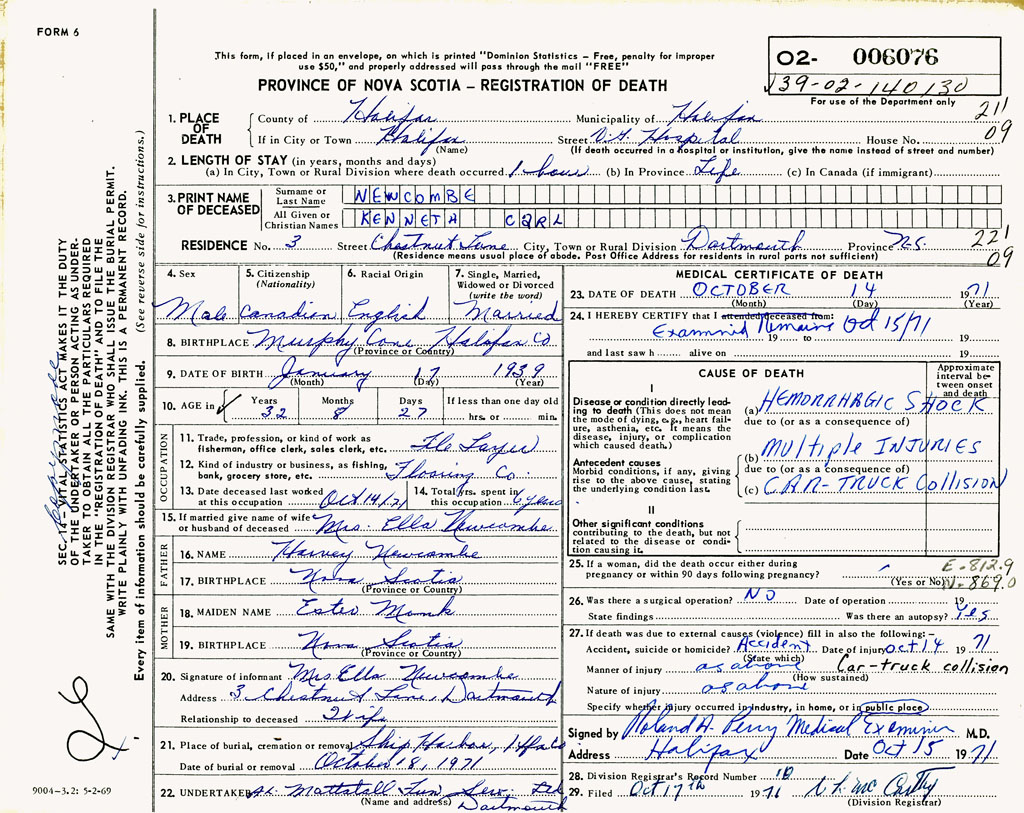 FORM 6
This form, if placed in an envelope, on which is printed "Dominion Statistics – Free, penalty for improper
use $50," and properly addressed will pass through the mail "FREE"
PROVINCE OF NOVA SCOTIA – REGISTRATION OF DEATH
02- 006076
39-02-140130
For use of the Department only
211
09
1. PLACE OF DEATH
County of Halifax Municipality of Halifax
If in City or Town Halifax Street V.G. Hospital House No.
(Name) (If death occurred in a hospital or institution, give the name instead of street and number)
2. LENGTH OF STAY (in years, months and days)
(a) In City, Town or Rural Division where death occurred 1 hour (b) In Province Life (c) In Canada (if immigrant)
3. PRINT NAME OF DECEASED
Surname or Last Name NEWCOMBE
All Given or Christian Names KENNETH CARL
RESIDENCE No. 3 Street Chestnut Lane City, Town or Rural Division Dartmouth Province N.S.
(Residence means usual place of abode. Post Office Address for residents in rural parts not sufficient)
221
09
4. Sex
Male
5. Citizenship (Nationality)
Canadian
6. Racial Origin
English
7. Single, Married, Widowed or Divorced (write the word)
Married
8. BIRTHPLACE Murphy Cove Halifax Co
(Province or Country)
9. DATE OF BIRTH January 17 1939
(Month) (Day) (Year)
10. AGE in Years Months Days If less than one day old
32 8 27 hrs. or min.
OCCUPATION
11. Trade, profession, or kind of work as
fisherman, office clerk, sales clerk, etc. Tile Layer
12. Kind of industry or business, as fishing,
bank, grocery store, etc. Flooring Co.
13. Date deceased last worked at this occupation Oct 14/71
14. Total yrs. spent in this occupation 6 years
15. If married give name of wife
or husband of deceased Mrs. Ella Newcombe
FATHER
16. NAME Harvey Newcombe
17. BIRTHPLACE Nova Scotia
(Province or Country)
MOTHER
18. MAIDEN NAME Ester Monk
19. BIRTHPLACE Nova Scotia
(Province or Country)
20. Signature of informant Mrs Ella Newcombe
Address 3 Chestnut Lane, Dartmouth
Relationship to deceased Wife
21. Place of burial, cremation or removal Ship Harbor, Hfx Co
Date of burial or removal October 18, 1971
22. UNDERTAKER Mattatall Fun. Serv. Ltd
(Name and address) Dartmouth
MEDICAL CERTIFICATE OF DEATH
23. DATE OF DEATH OCTOBER 14 1971
(Month) (Day) (Year)
24. I HEREBY CERTIFY that I attended deceased from:
Examined Remains Oct 15/71
19 to 19
and last saw h alive on 19
CAUSE OF DEATH
Approximate interval between onset and death
I
Disease or condition directly leading to death (This does not mean the mode of dying, e.g., heart failure, asthenia, etc. It means the disease, injury, or complication which caused death.)
(a) HEMORRHAGIC SHOCK
due to (or as a consequence of)
Antecedent causes
Morbid conditions, if any, giving rise to the above cause, stating the underlying condition last.
(b) MULTIPLE INJURIES
due to (or as a consequence of)
(c) CAR-TRUCK COLLISION
II
Other significant conditions
contributing to the death, but not related to the disease or condition causing it.
25. If a woman, did the death occur either during
pregnancy or within 90 days following pregnancy? (Yes or No)
E-812.9
N-869.0
26. Was there a surgical operation? NO Date of operation 19
State findings Was there an autopsy? Yes
27. If death was due to external causes (violence) fill in also the following:–
Accident, suicide or homicide? Accident Date of injury Oct 14 1971
(State which)
Manner of injury as above Car-truck collision
(How sustained)
Nature of injury as above
Specify whether injury occurred in industry, in home, or in public place
Signed by Roland A. Perry Medical Examiner M.D.
Address Halifax Date Oct 15 1971
28. Division Registrar's Record Number
29. Filed Oct 17th 1971
(Division Registrar)
SEC. 14 – VITAL STATISTICS ACT MAKES IT THE DUTY
OF THE UNDERTAKER OR PERSON ACTING AS UNDERTAKER TO OBTAIN ALL THE PARTICULARS REQUIRED
IN THE "REGISTRATION OF DEATH" AND TO FILE THE
SAME WITH THE DIVISION REGISTRAR WHO SHALL ISSUE THE BURIAL PERMIT.
WRITE PLAINLY WITH UNFADING INK. THIS IS A PERMANENT RECORD.
Every item of information should be carefully supplied. (See reverse side for instructions.)
9004-3.2: 5-2-69